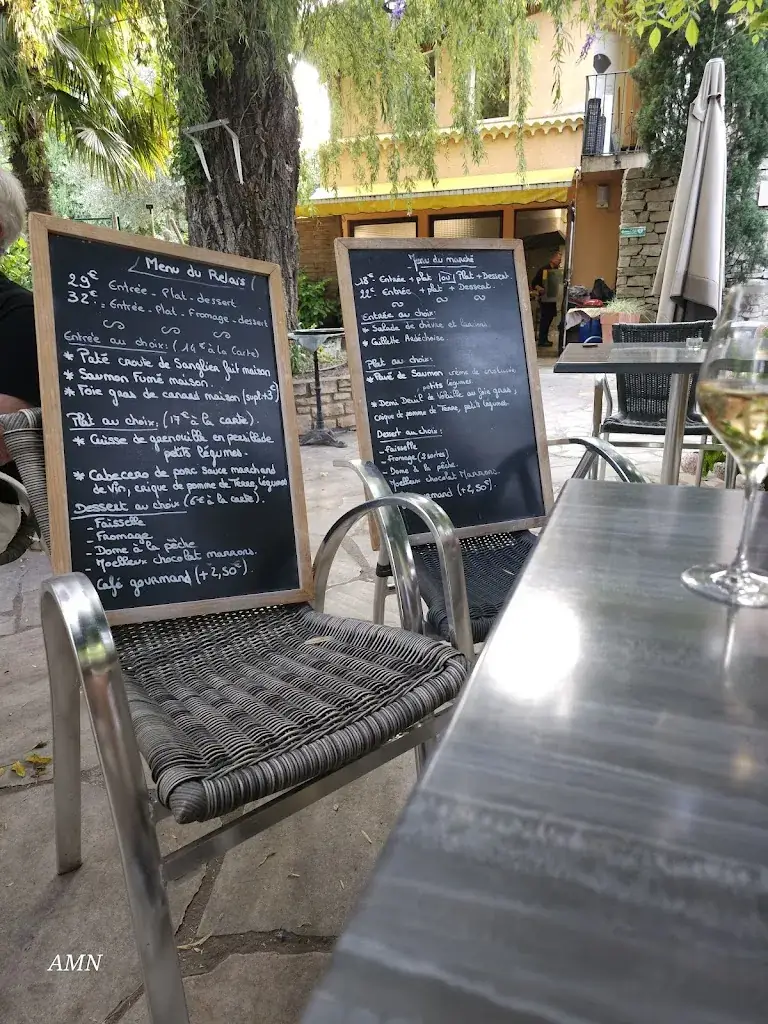 Menu du Relais
29€ Entrée - Plat - dessert
32€ Entrée - Plat - Fromage - dessert
Entrée au choix: (14€ à la carte)
* Paté croute de Sanglier fait maison
* Saumon Fumé maison.
* Foie gras de canard maison (supt+3€)
Plat au choix: (17€ à la carte).
* Cuisse de grenouille en persillade
petits légumes.
* Cabecero de porc Sauce marchand
de Vin, crique de pomme de Terre, légumes
Dessert au choix (6€ à la carte).
- Faisselle
- Fromage
- Dome à la pêche
- Moelleux chocolat marrons.
Café gourmand (+2,50€).
Menu du marché
18€ Entrée + plat /ou/ Plat + Dessert.
22€ Entrée + plat + Dessert.
Entrée au choix:
* Salade de chèvre et
* Caillette Ardéchoise
Plat au choix:
* Pavé de Saumon crème de
petits légumes
* Demi Deuil de Volaille au foie gras,
crique de pomme de Terre, petits légumes.
Dessert au choix:
- Faisselle
- Fromage (2 sortes)
- Dome à la pêche
- Moelleux chocolat Marrons.
gourmand (+2,50€).
AMN